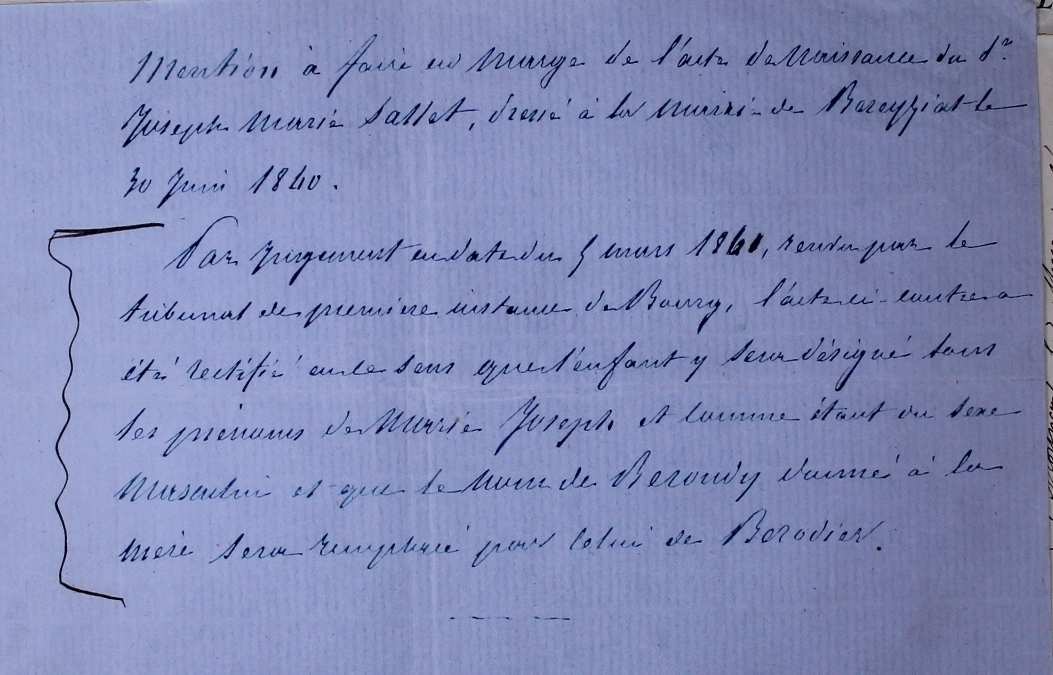 Mention à faire en marge de l'acte de Naissance du dr
Joseph Marie Sallet, dressé à la mairie de Bereyziat le
30 Juin 1840.
Par jugement en date du 5 mars 1861, rendu par le
tribunal de première instance de Bourg, l'acte ci-contre a
été rectifié en ce sens que l'enfant y sera désigné sous
les prénoms de Marie Joseph et comme étant du sexe
masculin et que le nom de Beroudy donné à la
mère sera remplacé par celui de Berodier.